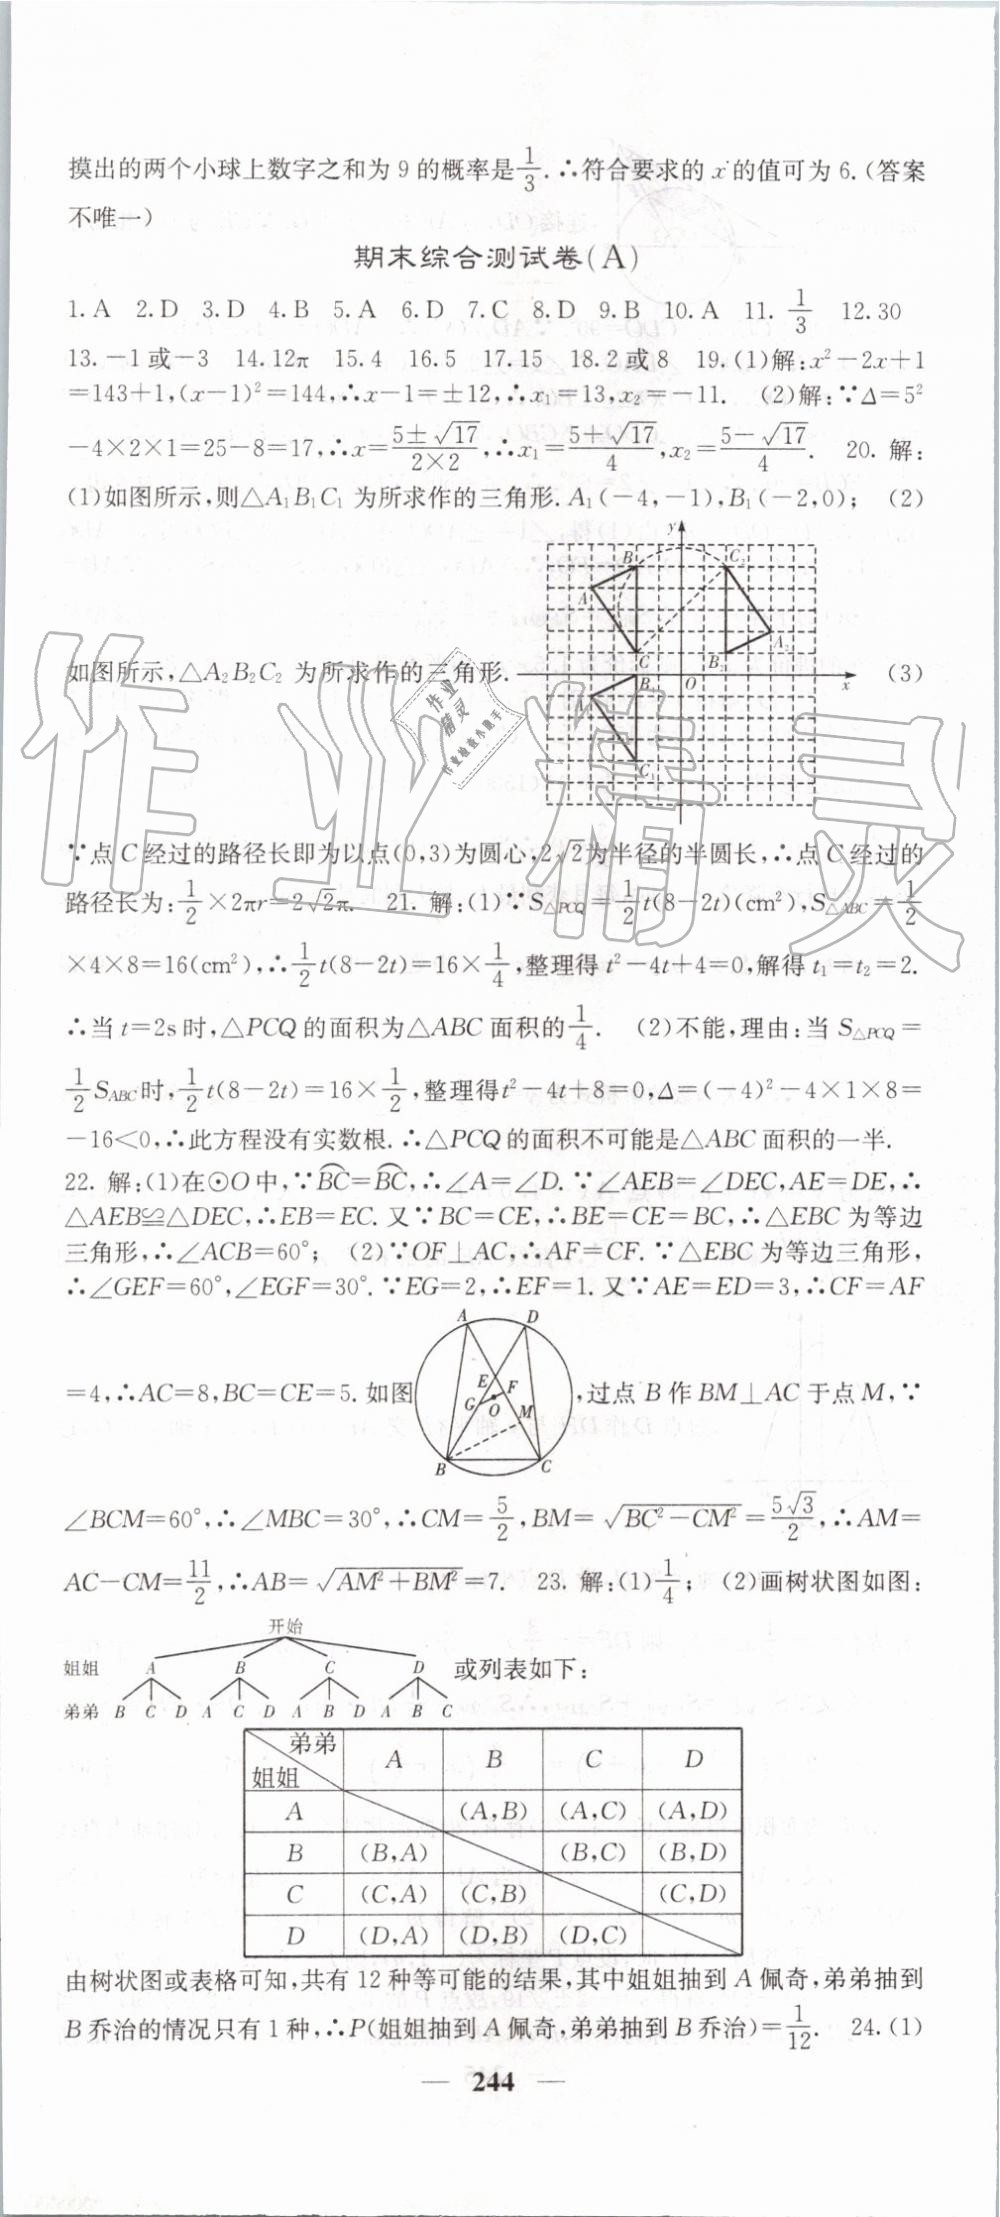 摸出的两个小球上数字之和为 9 的概率是1/3.∴符合要求的 x 的值可为 6.(答案
不唯一)
期末综合测试卷(A)
1.A 2.D 3.D 4.B 5.A 6.D 7.C 8.D 9.B 10.A 11. 1/3 12.30
13.-1或-3 14.12π 15.4 16.5 17.15 18.2或8 19.(1)解:x²-2x+1
=143+1,(x-1)²=144,∴x-1=±12,∴x₁=13,x₂=-11. (2)解:∵Δ=5²
-4×2×1=25-8=17,∴x=(5±√17)/(2×2),∴x₁=(5+√17)/4,x₂=(5-√17)/4. 20. 解:
(1)如图所示,则△A₁B₁C₁ 为所求作的三角形.A₁(-4,-1),B₁(-2,0); (2)
y
B C₂
A A₂
C B₂
如图所示,△A₂B₂C₂ 为所求作的三角形. B₁ O x (3)
A₁
C₁
∵点 C 经过的路径长即为以点(0,3)为圆心,2√2为半径的半圆长,∴点 C 经过的
路径长为:1/2×2πr=2√2π. 21. 解:(1)∵S△PCQ=1/2t(8-2t)(cm²),S△ABC=1/2
×4×8=16(cm²),∴1/2t(8-2t)=16×1/4,整理得 t²-4t+4=0,解得 t₁=t₂=2.
∴当 t=2s 时,△PCQ 的面积为△ABC 面积的1/4. (2)不能,理由:当 S△PCQ=
1/2SABC时,1/2t(8-2t)=16×1/2,整理得t²-4t+8=0,Δ=(-4)²-4×1×8=
-16<0,∴此方程没有实数根.∴△PCQ 的面积不可能是△ABC 面积的一半.
22. 解:(1)在⊙O 中,∵B͡C=B͡C,∴∠A=∠D.∵∠AEB=∠DEC,AE=DE,∴
△AEB≌△DEC,∴EB=EC.又∵BC=CE,∴BE=CE=BC,∴△EBC 为等边
三角形,∴∠ACB=60°; (2)∵OF⊥AC,∴AF=CF.∵△EBC 为等边三角形,
∴∠GEF=60°,∠EGF=30°.∵EG=2,∴EF=1.又∵AE=ED=3,∴CF=AF
A D
E F
=4,∴AC=8,BC=CE=5.如图 ,过点 B 作 BM⊥AC 于点 M,∵
G O M
B C
∠BCM=60°,∴∠MBC=30°,∴CM=5/2,BM=√(BC²-CM²)=5√3/2,∴AM=
AC-CM=11/2,∴AB=√(AM²+BM²)=7. 23. 解:(1)1/4; (2)画树状图如图:
开始
姐姐 A B C D 或列表如下:
弟弟 B C D A C D A B D A B C
弟弟 A B C D
姐姐
A (A,B) (A,C) (A,D)
B (B,A) (B,C) (B,D)
C (C,A) (C,B) (C,D)
D (D,A) (D,B) (D,C)
由树状图或表格可知,共有 12 种等可能的结果,其中姐姐抽到 A 佩奇,弟弟抽到
B 乔治的情况只有 1 种,∴P(姐姐抽到 A 佩奇,弟弟抽到 B 乔治)=1/12. 24.(1)
— 244 —
作业精灵
作业
精灵
作业检查小助手